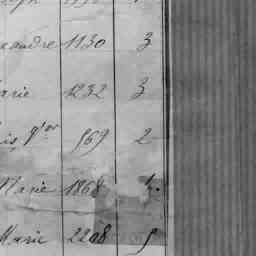 andre 1130 3
arie 1232 3
is 969 2
Marie 1868 4.
Marie 2208 5